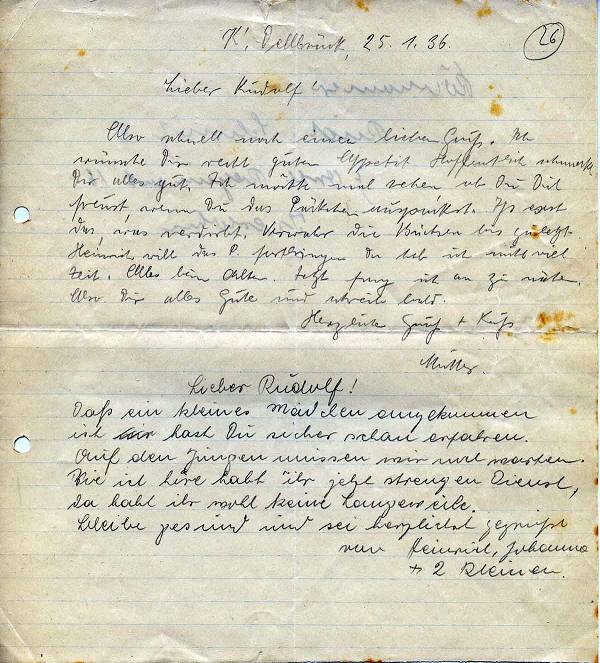 K', Dellbrück, 25.1.36.
26
Lieber Rudolf!
Also schnell noch einen lieben Gruß. Ich
wünsche Dir recht guten Appetit Hoffentlich schmeckt
Dir alles gut. Ich möchte mal sehen ob Du Dich
freust wenn Du das Päckchen auspackst. Iß erst
das, was verdirbt. Verwahr die Büchsen bis zuletzt
Heinrich will das P. fortbringen Da hab ich nicht viel
Zeit. Alles beim Alten. Jetzt fang ich an zu nähen.
Also Dir alles Gute und schreib bald.
Herzliche Grüß + Kuß
Mutter.
Lieber Rudolf!
Daß ein kleines Mädchen angekommen
ist hast Du sicher schon erfahren.
Auf den Jungen müssen wir noch warten.
Wie ich höre habt ihr jetzt strengen Dienst,
da habt ihr wohl keine Langeweile.
Bleibe gesund und sei herzlichst gegrüßt
von Heinrich, Johanna
+ 2 Kleinen.